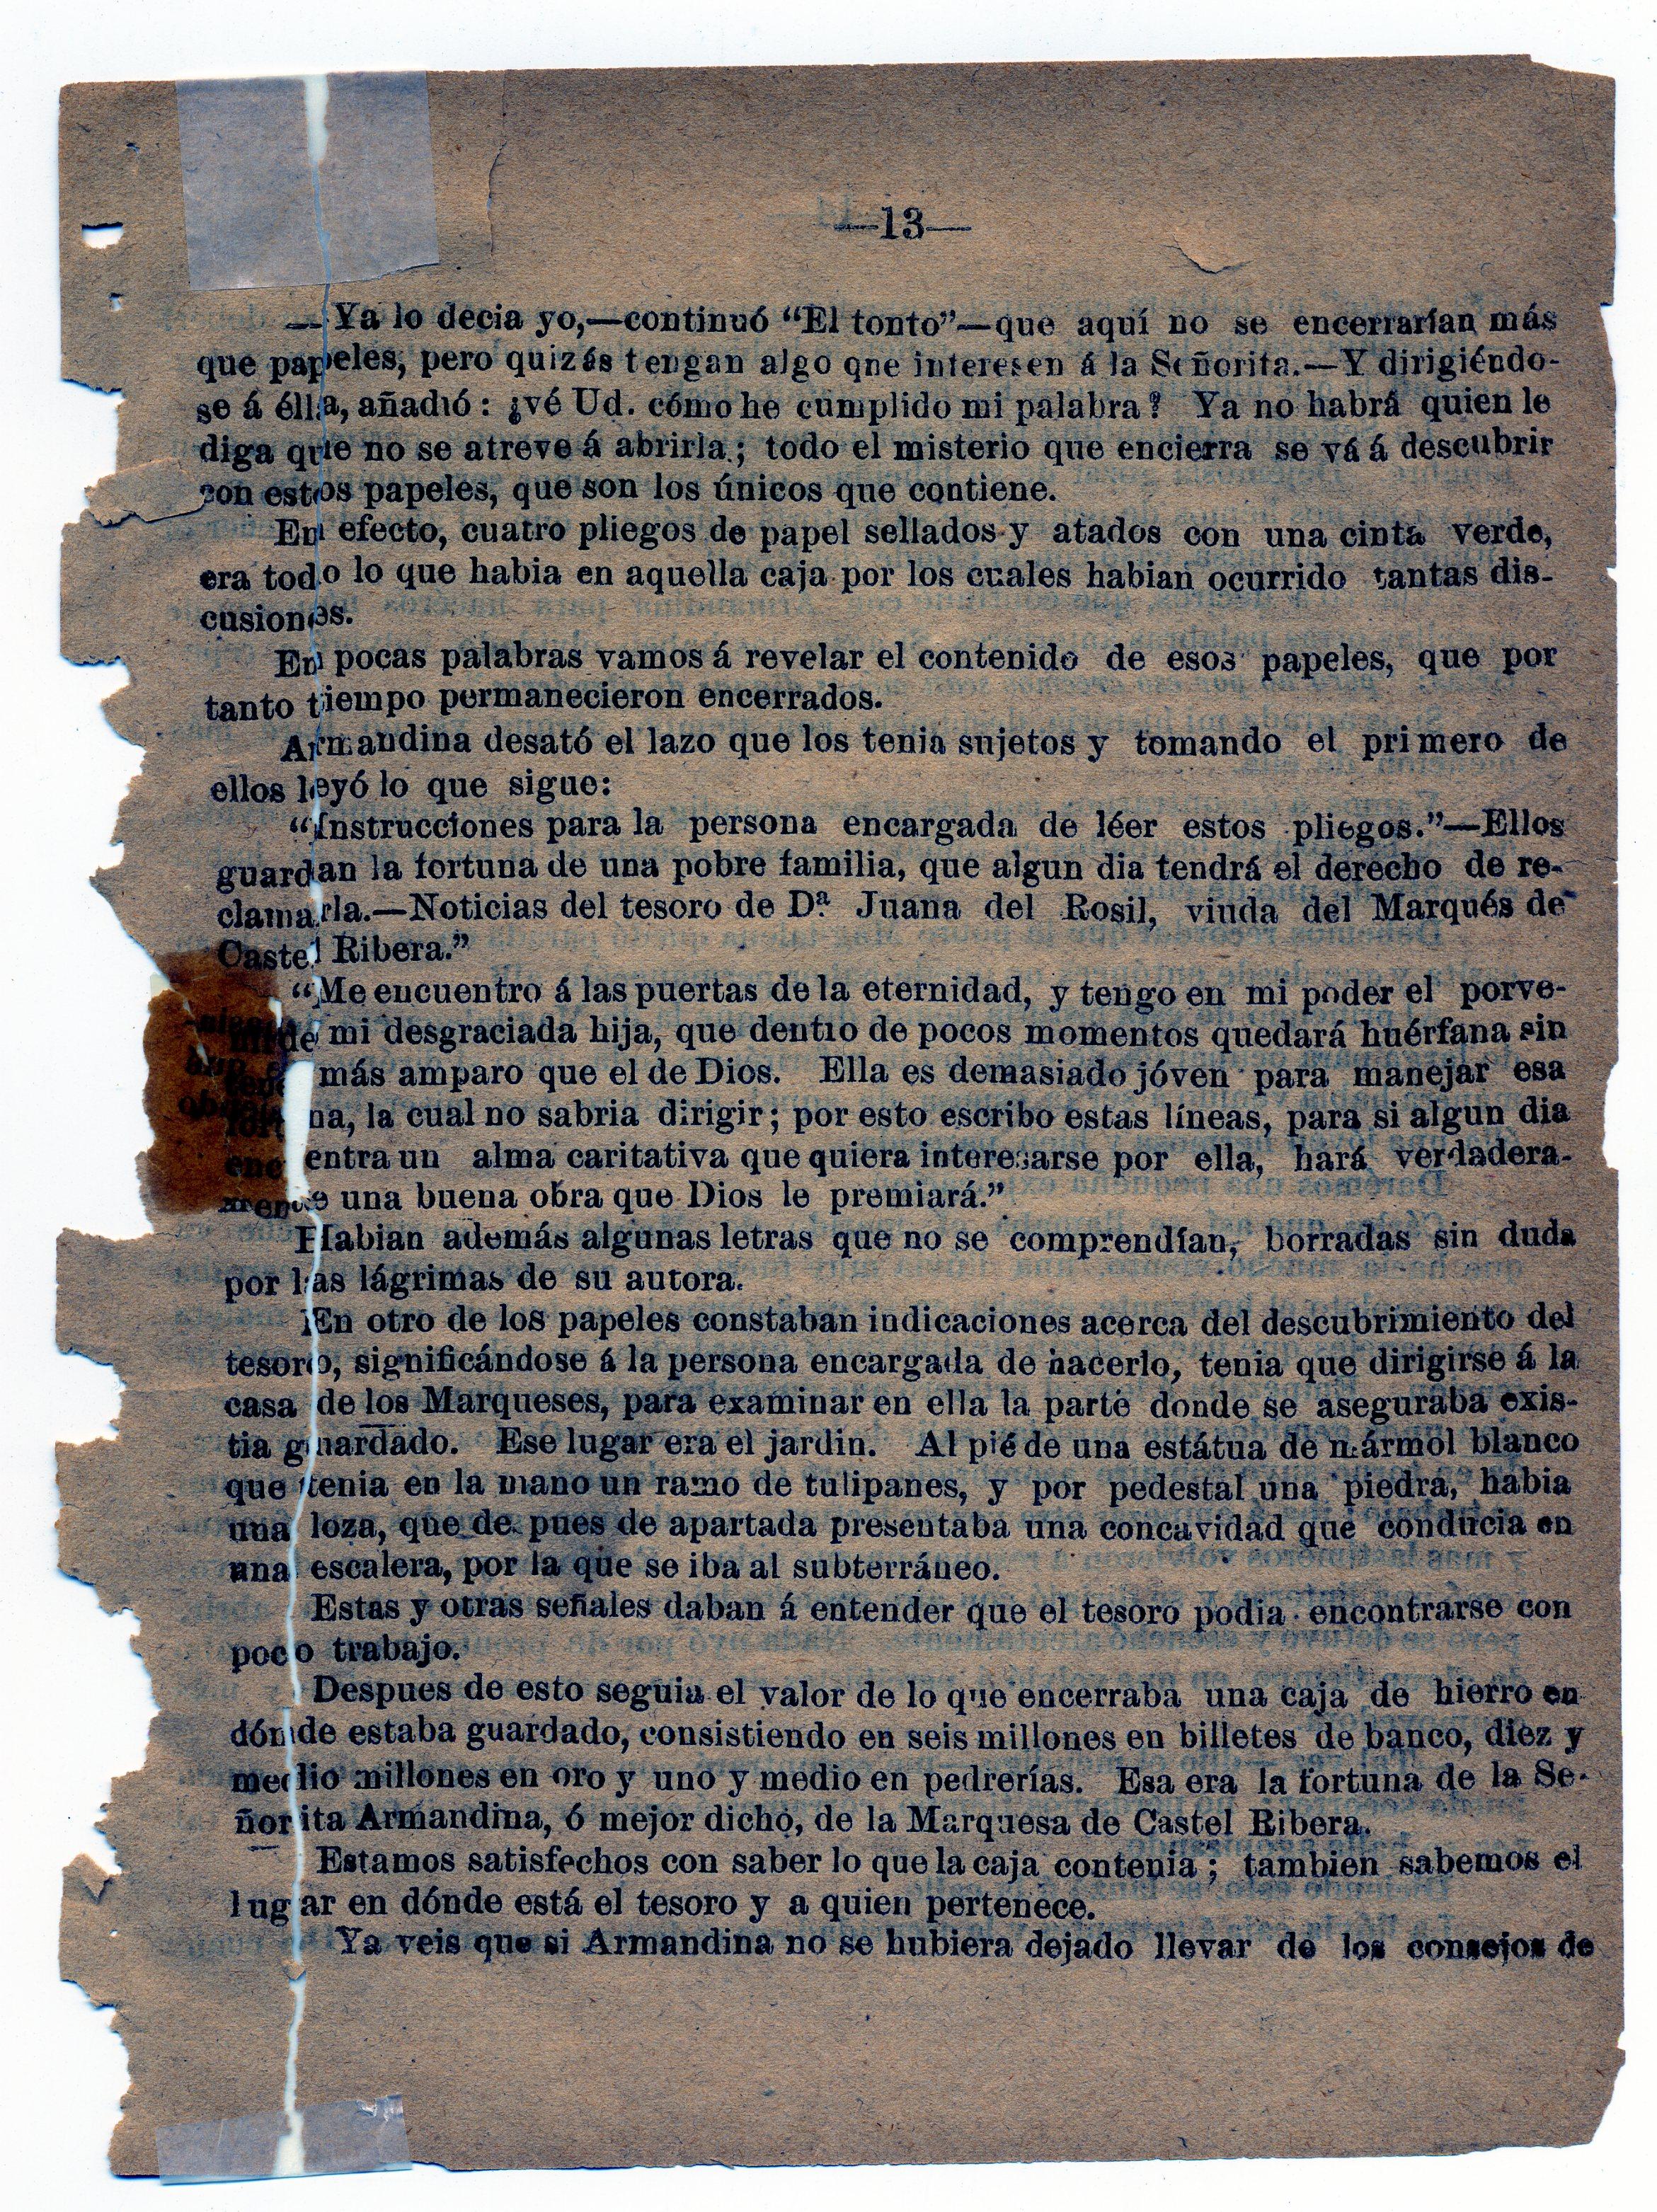 —13—
—Ya lo decia yo,—continuó “El tonto”—que aquí no se encerrarían más
que papeles, pero quizás tengan algo qne interesen á la Señorita.—Y dirigiéndo-
se á élla, añadió: ¿vé Ud. cómo he cumplido mi palabra? Ya no habrá quien le
diga que no se atreve á abrirla; todo el misterio que encierra se vá á descubrir
con estos papeles, que son los únicos que contiene.
En efecto, cuatro pliegos de papel sellados y atados con una cinta verde,
era todo lo que habia en aquella caja por los cuales habian ocurrido tantas dis-
cusiones.
En pocas palabras vamos á revelar el contenido de esos papeles, que por
tanto tiempo permanecieron encerrados.
Armandina desató el lazo que los tenia sujetos y tomando el primero de
ellos leyó lo que sigue:
“Instrucciones para la persona encargada de léer estos pliegos.”—Ellos
guardan la fortuna de una pobre familia, que algun dia tendrá el derecho de re-
clamarla.—Noticias del tesoro de Dª Juana del Rosil, viuda del Marqués de
Castel Ribera.”
“Me encuentro á las puertas de la eternidad, y tengo en mi poder el porve-
nir de mi desgraciada hija, que dentro de pocos momentos quedará huérfana sin
tener más amparo que el de Dios. Ella es demasiado jóven para manejar esa
fortuna, la cual no sabria dirigir; por esto escribo estas líneas, para si algun dia
encuentra un alma caritativa que quiera interesarse por ella, hará verdadera-
mente una buena obra que Dios le premiará.”
Habian además algunas letras que no se comprendían, borradas sin duda
por las lágrimas de su autora.
En otro de los papeles constaban indicaciones acerca del descubrimiento del
tesoro, significándose á la persona encargada de hacerlo, tenia que dirigirse á la
casa de los Marqueses, para examinar en ella la parte donde se aseguraba exis-
tia guardado. Ese lugar era el jardin. Al pié de una estátua de mármol blanco
que tenia en la mano un ramo de tulipanes, y por pedestal una piedra, habia
una loza, que despues de apartada presentaba una concavidad que conducia en
una escalera, por la que se iba al subterráneo.
Estas y otras señales daban á entender que el tesoro podia encontrarse con
poco trabajo.
Despues de esto seguia el valor de lo que encerraba una caja de hierro en
dónde estaba guardado, consistiendo en seis millones en billetes de banco, diez y
medio millones en oro y uno y medio en pedrerías. Esa era la fortuna de la Se-
ñorita Armandina, ó mejor dicho, de la Marquesa de Castel Ribera.
Estamos satisfechos con saber lo que la caja contenia; tambien sabemos el
lugar en dónde está el tesoro y a quien pertenece.
Ya veis que si Armandina no se hubiera dejado llevar de los consejos de